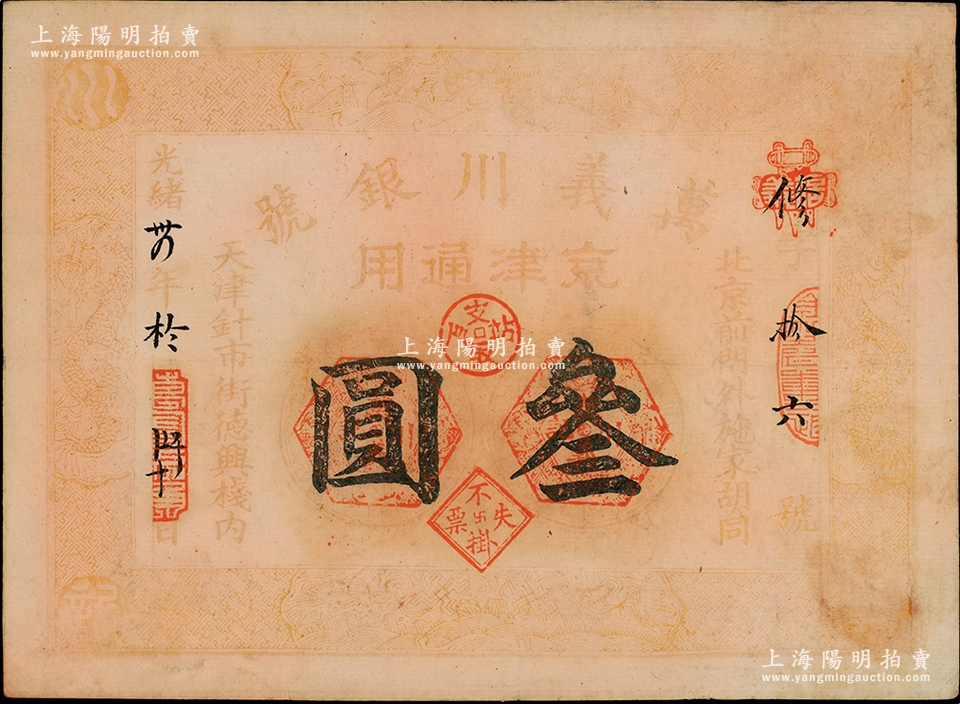 上海陽明拍賣
www.yangmingauction.com
義川銀號
京津通用
萬
北京前門外施家胡同
修字
拾六
號
叁圓
失票不掛
天津針市街德興棧内
光緒卅年
日
上海陽明拍賣
www.yangmingauction.com
上海陽明拍賣
www.yangmingauction.com